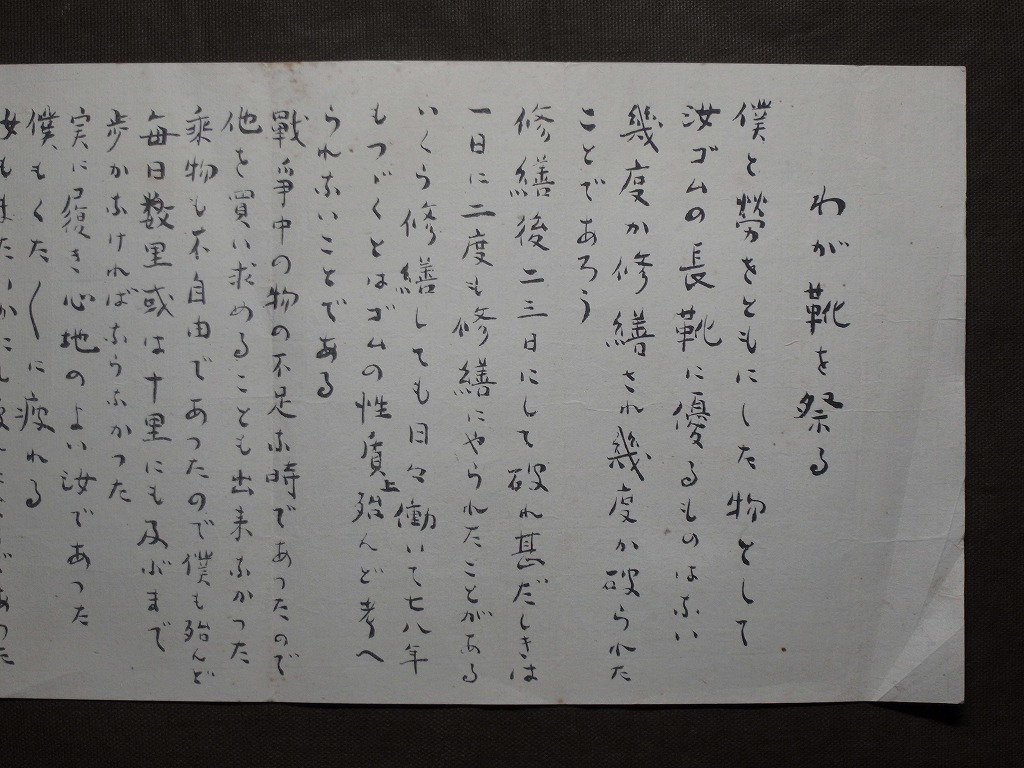 わが靴を祭る
僕と労をともにした物として
汝ゴムの長靴に優るものはない
幾度か修繕され幾度か破られた
ことであろう
修繕後二三日にして破れ甚だしきは
一日に二度も修繕にやられたことがある
いくら修繕しても日々働いて七八年
もつづくとはゴムの性質上殆んど考へ
られないことである
戰爭中の物の不足な時であつたので
他を買い求めることも出来なかつた
乘物も不自由であつたので僕も殆んど
每日数里或は十里にも及ぶまで
歩かなければならなかつた
実に履き心地のよい汝であつた
僕もくた〱に疲れる
汝もまたいかにも